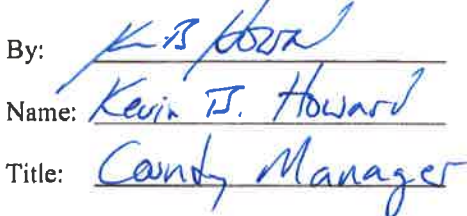 By: K B Howard
Name: Kevin B. Howard
Title: County Manager